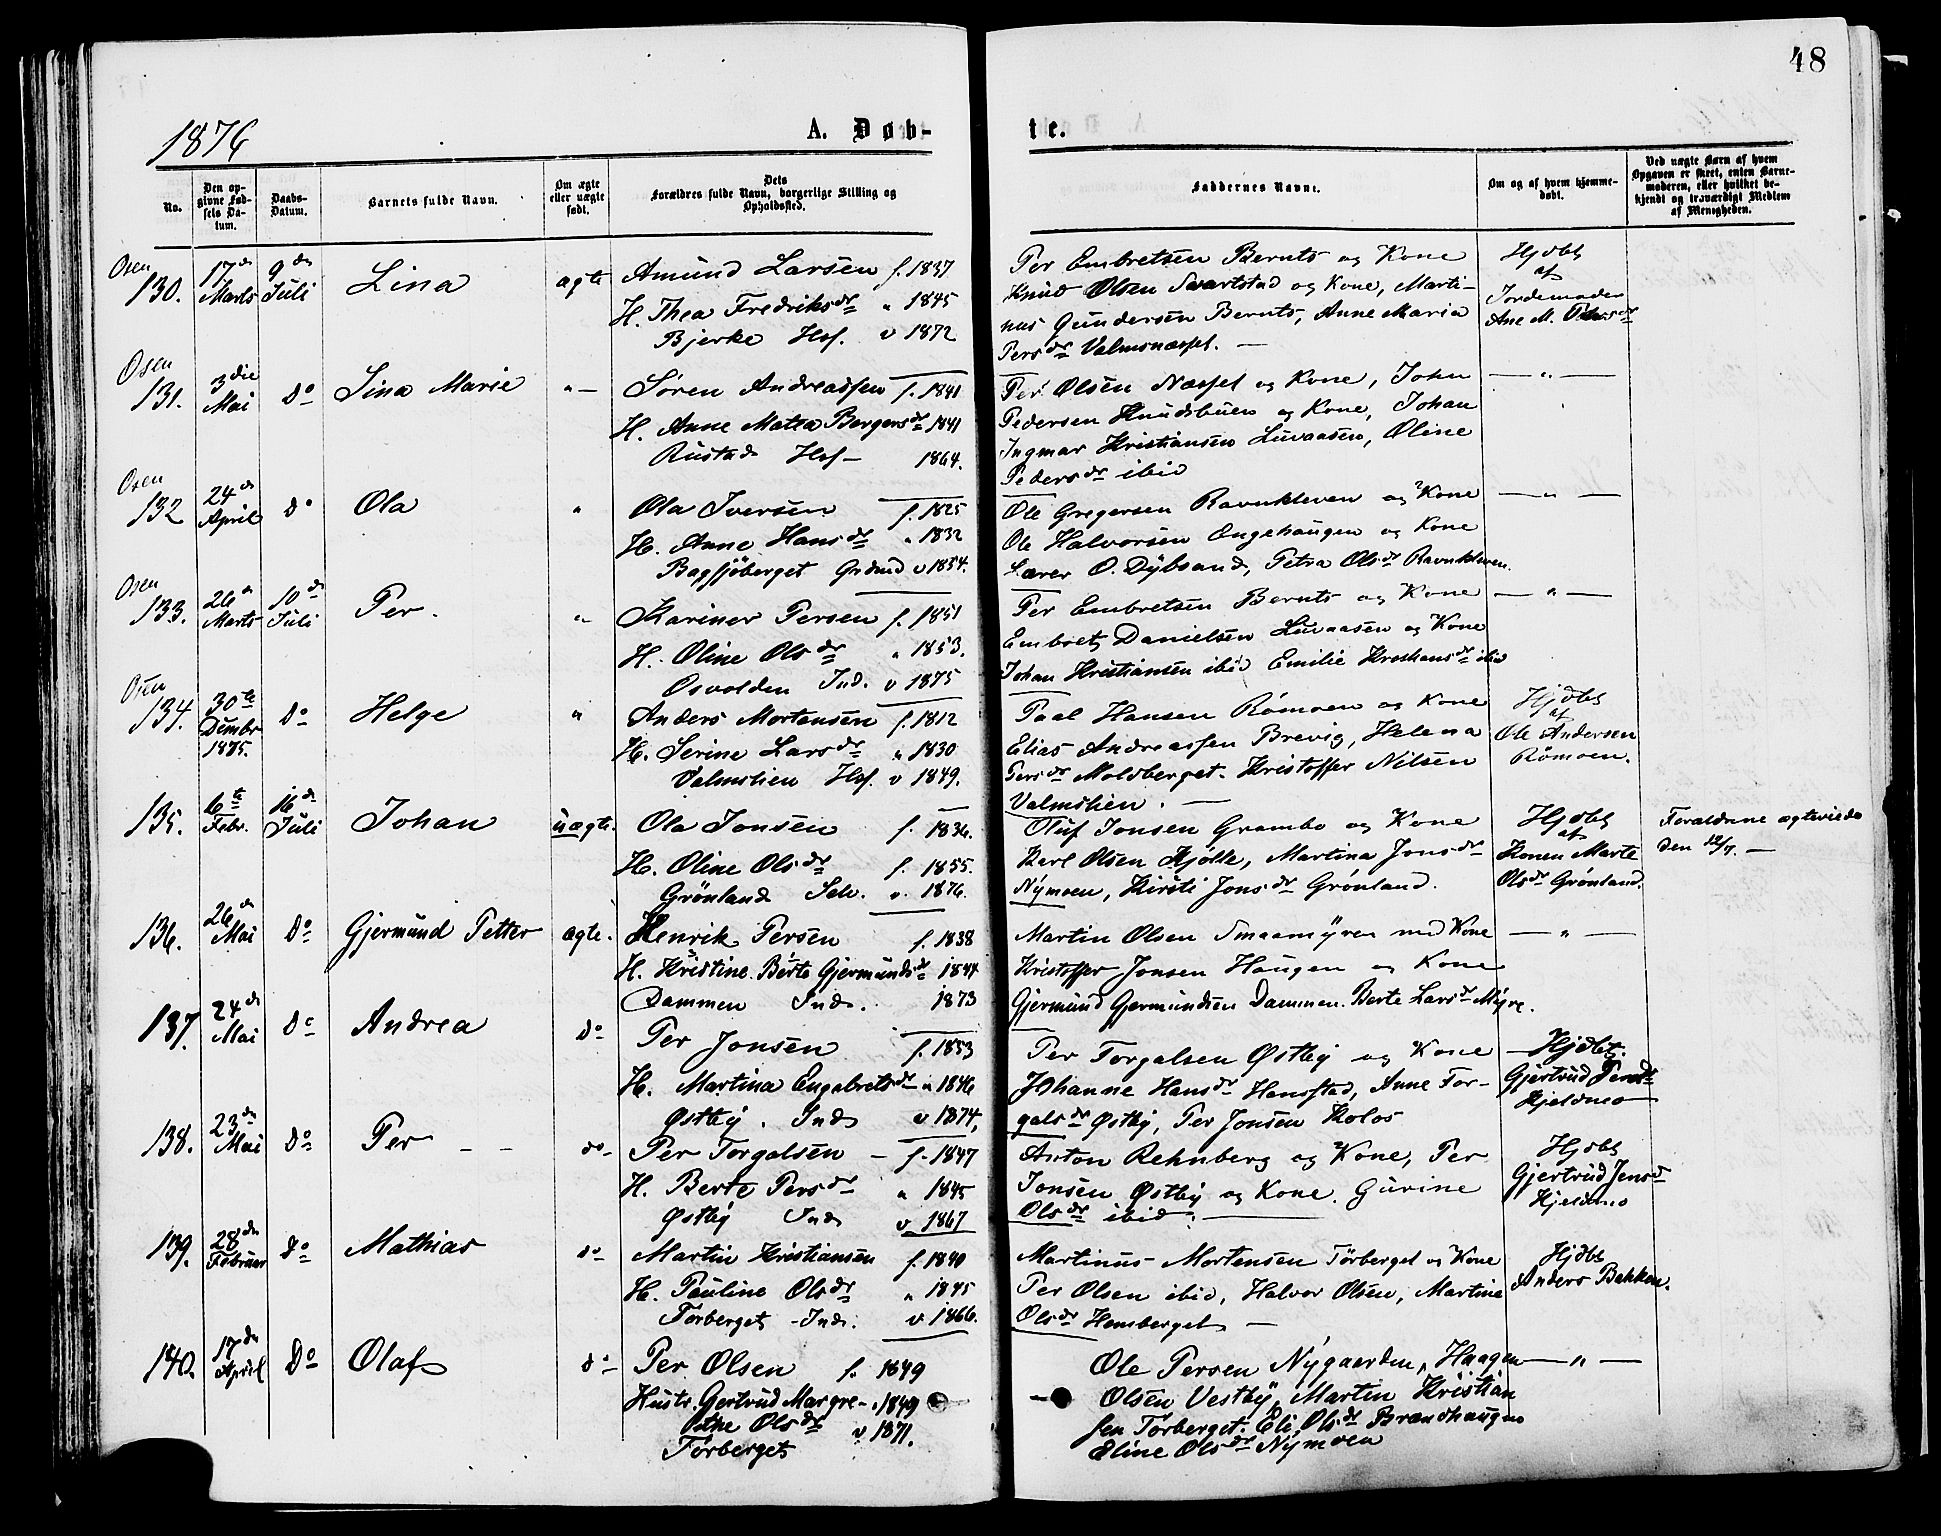 48
1876
A. Døb-
te.
No.
Den op-
givne Fød-
sels Da-
tum.
Daabs-
Datum.
Barnets fulde Navn.
Om ægte
eller uægte
født.
Dets
Forældres fulde Navn, borgerlige Stilling og
Opholdssted.
Faddernes Navne.
Om og af hvem hjemme-
døbt.
Ved uægte Børn af hvem
Opgaven er skeet, enten Barne-
moderen, eller hvilket be-
kjendt og troværdigt Medlem
af Menigheden.
Osen
130. 17de Marts 9de Juli Lina ægte
Amund Larsen f. 1837
H. Thea Fredriksdr " 1845
Bjerke Hsf. v 1872
Per Embretsen Bernts og Kone
Knud Olsen Svartstad og Kone, Marti-
nus Gundersen Bernts, Anne Maria
Persdr Valmsnæsset. —
Hjdbt
af
Jordemoder
Ane M.
Osen
131. 3die Mai Do Sina Marie " —
Søren Andreassen f. 1841
H. Anne Matea Bergersdr 1841
Rustad Hsf — 1864.
Per Olsen Næsset og Kone, John
Pedersen Knudsbuen og Kone, Johan
Ingmar Kristiansen Luvaasen, Oline
Pedersdr ibid
— " —
Osen
132 24de April do Ola "
Ola Iversen f. 1825
H. Anne Hansdr " 1832
Bagsjøberget Grdmd v 1854.
Ole Gregersen Ravnkleven og Kone
Ole Halvorsen Engehaugen og Kone
Lærer O. Dybsand, Petra Olsdr Ravnkleven.
— " —
Osen
133. 26de Marts 10de Juli Per. "
Kariner Persen f. 1851
H. Oline Olsdr " 1853.
Osvolden Ind. v 1875
Per Embretsen Bernts og Kone
Embret Danielsen Luvaasen og Kone
Johan Kristiansen ibid Emilie Kristiansdr ibid
— " —
Osen
134. 30te Dember 1875. Do Helge "
Anders Mortensen f. 1812
H. Serine Larsdr " 1830
Valmslien Hsf. v 1849.
Paal Hansen Rømoen og Kone
Elias Andreassen Brevig, Helena
Persdr Moldberget. Kristoffer Nilsen
Valmslien. —
Hjdbt
af
Ole Andersen
Rømoen.
135. 6te Febr. 16de Juli Johan uægte.
Ola Jonsen f. 1836.
H. Oline Olsdr f. 1855.
Grønland Selv. v. 1876.
Oluf Jonsen Grambo og Kone
Karl Olsen Kjølle, Martina Jonsdr
Nymoen, Kirsti Jonsdr Grønland.
Hjdbt
af
Konen Marte
Olsdr Grønland.
Forældrene ægteviede
den 12/7. —
136. 26de Mai Do Gjermund Petter ægte.
Henrik Persen f. 1838
H. Kristine Berte Gjermundsdr 1844
Dammen Ind. 1873
Martin Olsen Smaamyren med Kone
Kristoffer Jonsen Haugen og Kone
Gjermund Gjermundsen Dammen. Berte Larsdr Myre.
— " —
137. 24de Mai Do Andrea do
Per Jonsen f. 1853
H. Martina Engebretsdr " 1846
Østby. Ind v 1874,
Per Torgalsen Østby og Kone
Johanne Hansdr Hansstad, Anne Tor-
galsdr Østby, Per Jonsen Kolos
Hjdbt.
Gjertrud Jensdr
Kjeldmo
138. 23de Mai Do Per — — do-
Per Torgalsen — f. 1847
H. Berte Persdr " 1845
Østby Ind v. 1867
Anton Rehnberg og Kone, Per
Jonsen Østby og Kone. Gurine
Olsdr ibid. —
Hjdbt
Gjertrud Jensd
Kjeldmo
139. 28de Februar do Mathias do
Martin Kristiansen f. 1840
H. Pauline Olsdr " 1845
Tørberget - Ind. v. 1866.
Martinus Mortensen Tørberget og Kone
Per Olsen ibid, Halvor Olsen, Martine
Olsdr Hemberget —
Hjdbt
Anders Bakken.
140. 17de April Do Olaf do
Per Olsen f. 1849
Hustr. Gertrud Margre- " 1849
the Olsdr v 1871.
Tørberget
Ole Persen Nygaarden, Haagen
Olsen Vestby, Martin Kristian
sen Tørberget. Eli Olsdr Brændhaugen
Eline Olsdr Nymoen
— " —